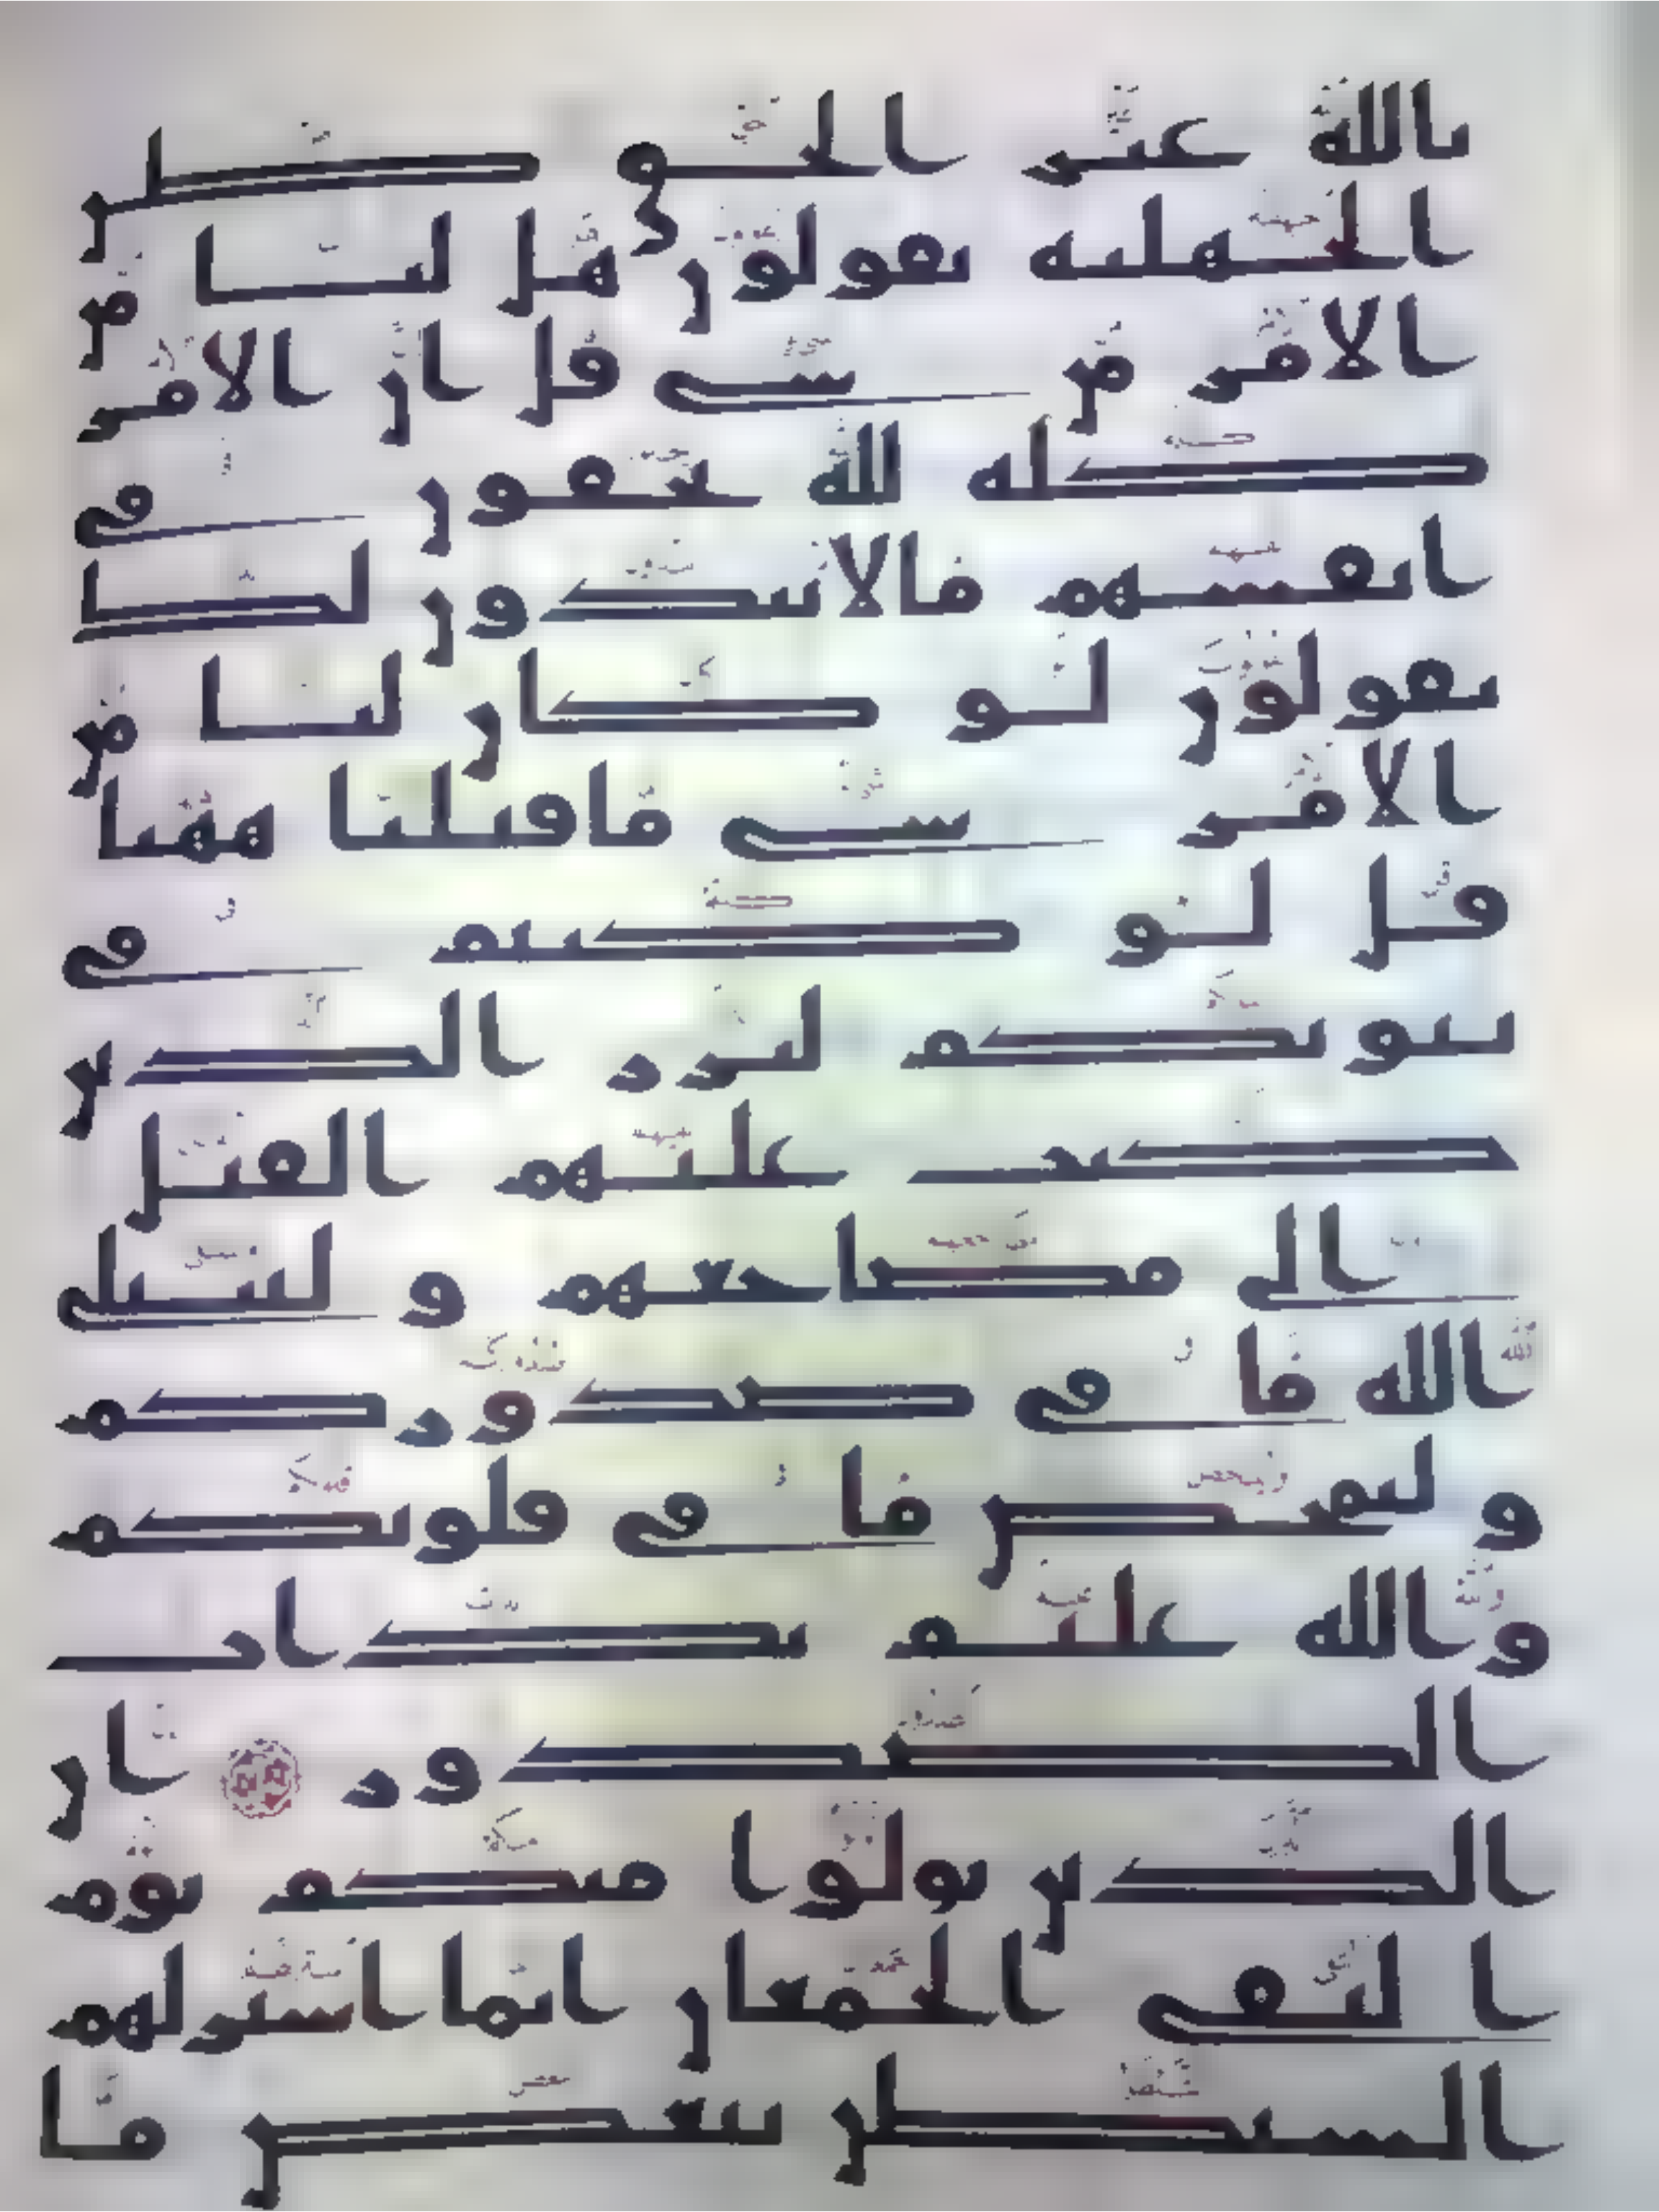 بالله غير الحق ظن
الجهلية يقولون هل لنا من
الامر من شي قل ان الامر
كله لله يخفون في
انفسهم ما لا يبدون لك
يقولون لو كان لنا من
الامر شي ما قتلنا ههنا
قل لو كنتم في
بيوتكم لبرز الذين
كتب عليهم القتل
الى مضاجعهم و ليبتلي
الله ما في صدوركم
و ليمحص ما في قلوبكم
والله عليم بذات
الصدور ان
الذين تولوا منكم يوم
التقى الجمعان انما استزلهم
الشيطن ببعض ما